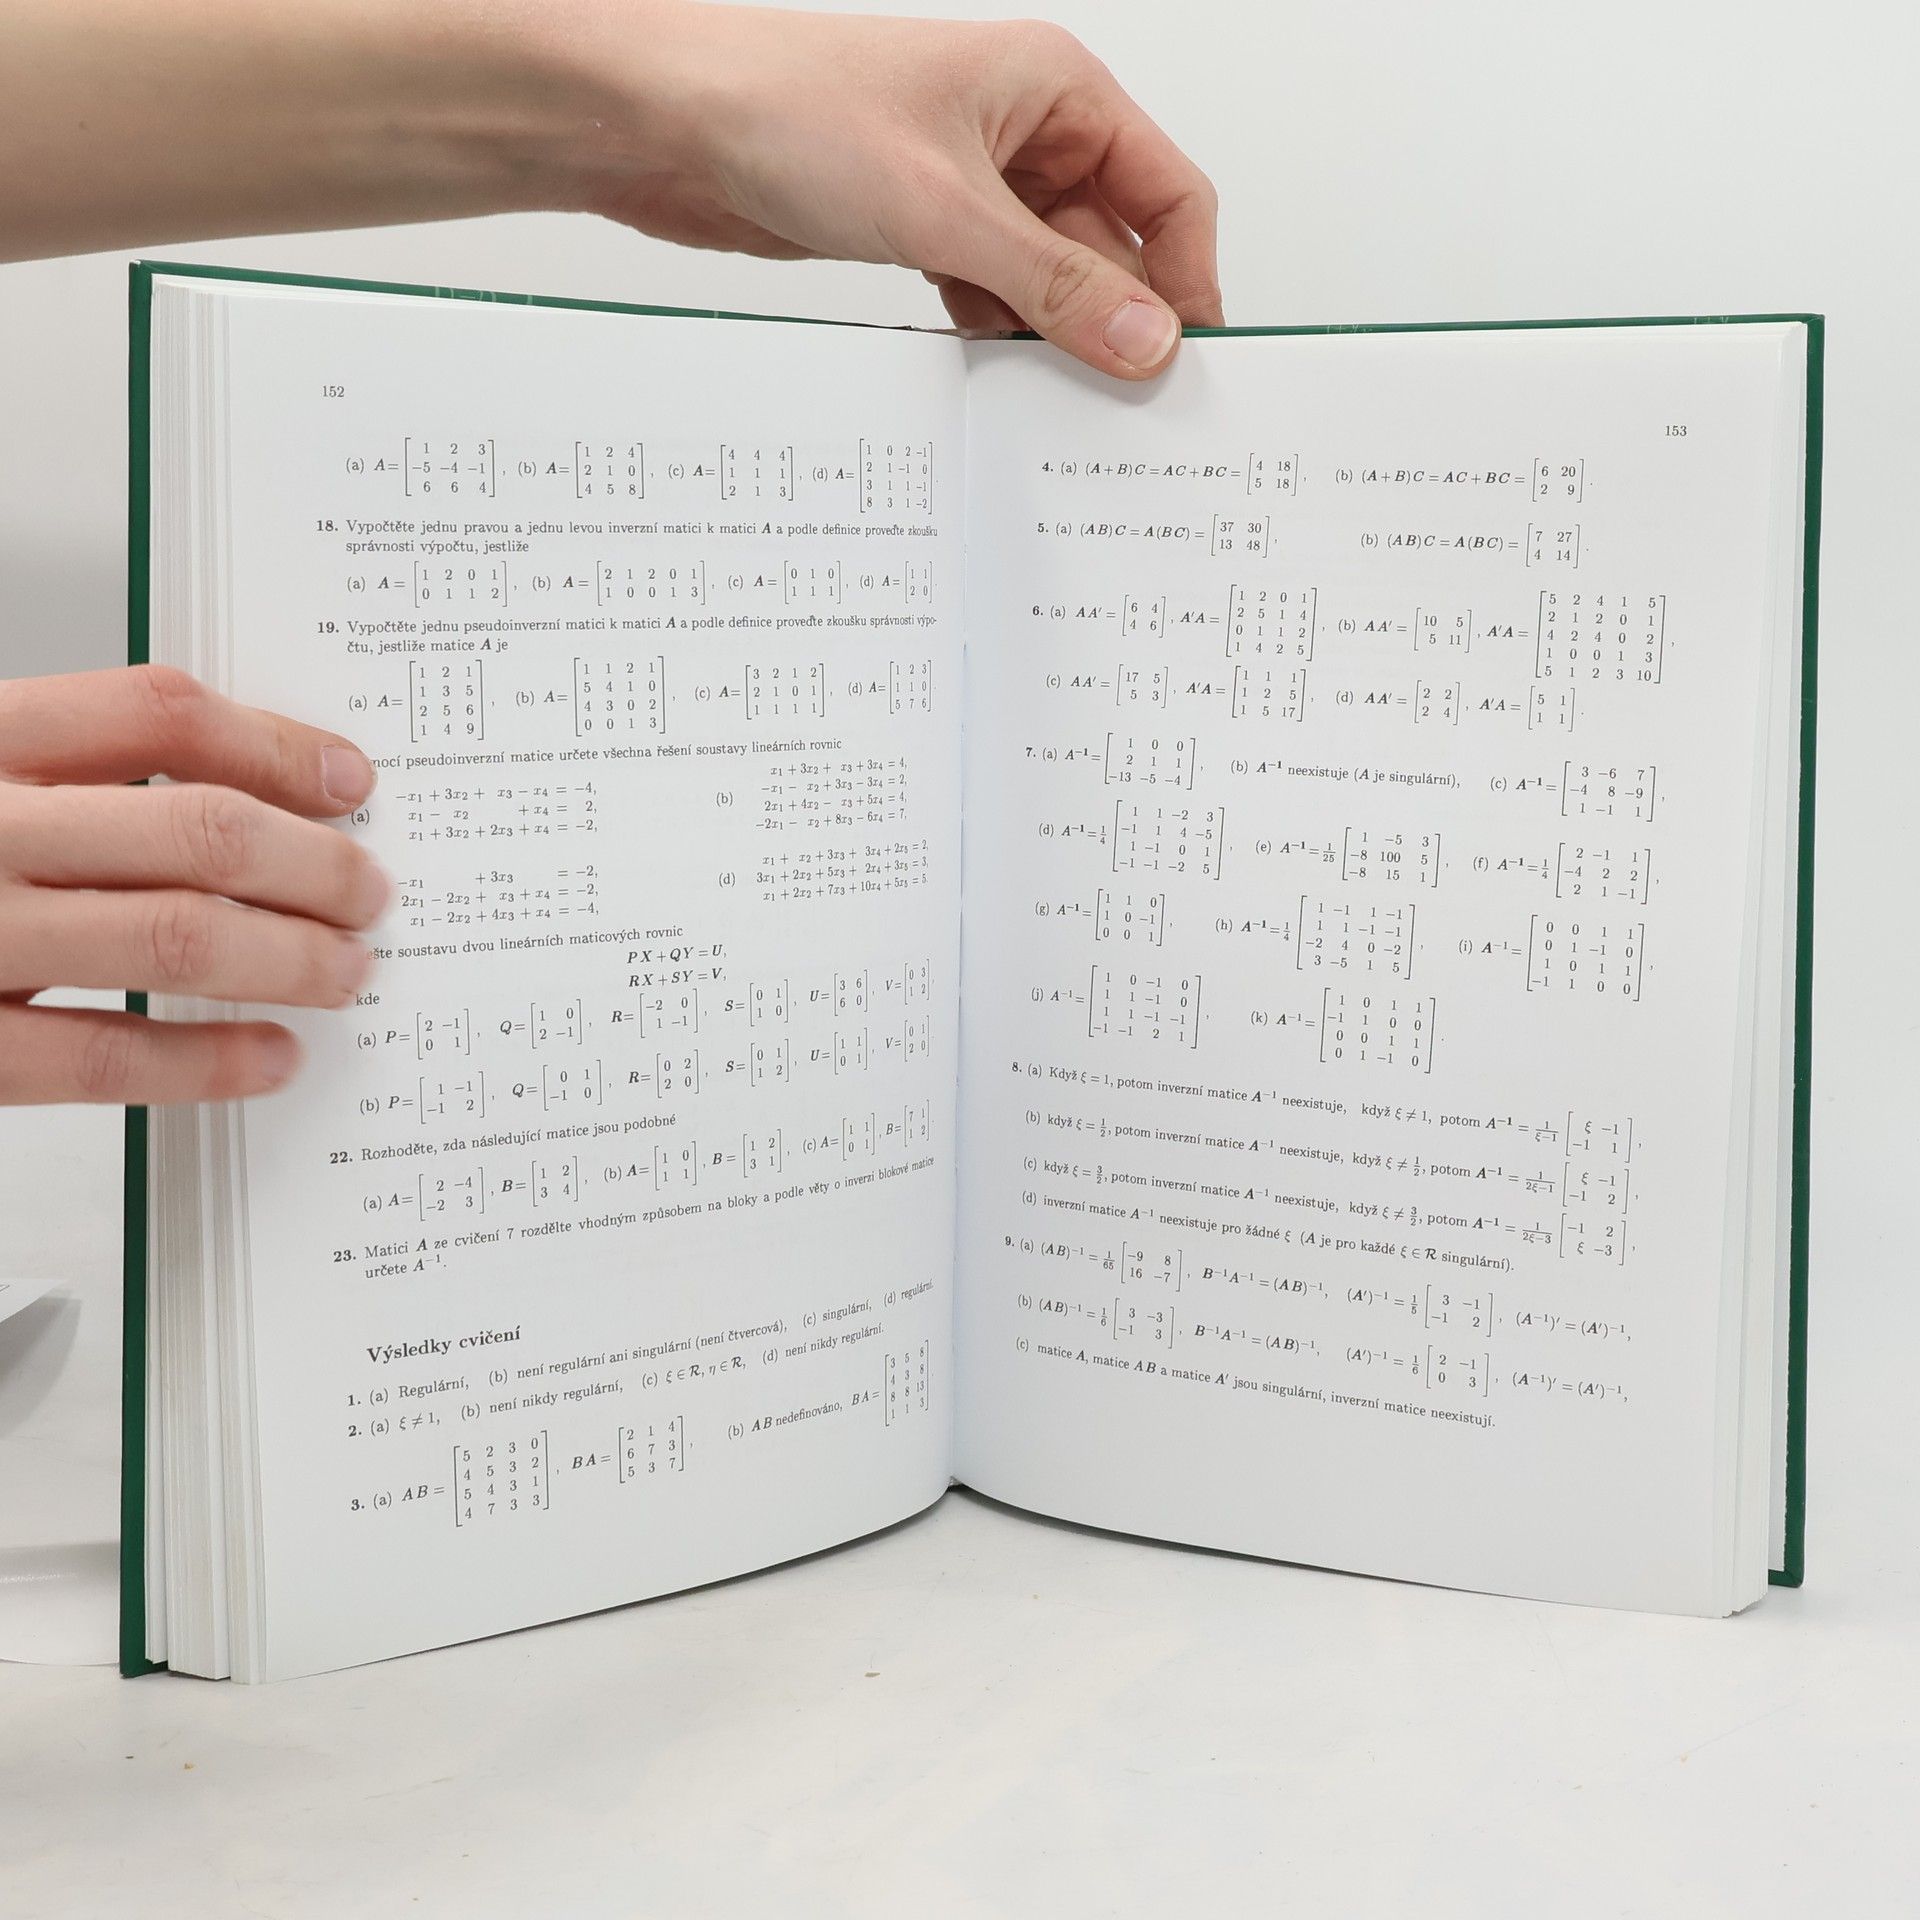 152
(a) A = [1 2 3; -5 -4 -1; 6 6 4], (b) A = [1 2 4; 2 1 0; 4 5 8], (c) A = [4 4 4; 1 1 1; 2 1 3], (d) A = [1 0 2 -1; 2 1 -1 0; 3 1 1 -1; 8 3 1 -2].
18. Vypočtěte jednu pravou a jednu levou inverzní matici k matici A a podle definice proveďte zkoušku
správnosti výpočtu, jestliže
(a) A = [1 2 0 1; 0 1 1 2], (b) A = [2 1 2 0 1; 1 0 0 1 3], (c) A = [0 1 0; 1 1 1], (d) A = [1 1; 2 0].
19. Vypočtěte jednu pseudoinverzní matici k matici A a podle definice proveďte zkoušku správnosti výpo-
čtu, jestliže matice A je
(a) A = [1 2 1; 1 3 5; 2 5 6; 1 4 9], (b) A = [1 1 2 1; 5 4 1 0; 4 3 0 2; 0 0 1 3], (c) A = [3 2 1 2; 2 1 0 1; 1 1 1 1], (d) A = [1 2 3; 1 1 0; 5 7 6].
mocí pseudoinverzní matice určete všechna řešení soustavy lineárních rovnic
(a) -x₁ + 3x₂ + x₃ - x₄ = -4,
x₁ - x₂ + x₄ = 2,
x₁ + 3x₂ + 2x₃ + x₄ = -2,
(b) x₁ + 3x₂ + x₃ + 3x₄ = 4,
-x₁ - x₂ + 3x₃ - 3x₄ = 2,
2x₁ + 4x₂ - x₃ + 5x₄ = 4,
-2x₁ - x₂ + 8x₃ - 6x₄ = 7,
-x₁ + 3x₃ = -2,
2x₁ - 2x₂ + x₃ + x₄ = -2,
x₁ - 2x₂ + 4x₃ + x₄ = -4,
(d) x₁ + x₂ + 3x₃ + 3x₄ + 2x₅ = 2,
3x₁ + 2x₂ + 5x₃ + 2x₄ + 3x₅ = 3,
x₁ + 2x₂ + 7x₃ + 10x₄ + 5x₅ = 5.
ešte soustavu dvou lineárních maticových rovnic
PX + QY = U,
RX + SY = V,
kde
(a) P = [2 -1; 0 1], Q = [1 0; 2 -1], R = [-2 0; 1 -1], S = [0 1; 1 0], U = [3 6; 6 0], V = [0 3; 1 2],
(b) P = [1 -1; -1 2], Q = [0 1; -1 0], R = [0 2; 2 0], S = [0 1; 1 2], U = [1 1; 0 1], V = [0 1; 2 0].
22. Rozhoděte, zda následující matice jsou podobné
(a) A = [2 -4; -2 3], B = [1 2; 3 4], (b) A = [1 0; 1 1], B = [1 2; 3 1], (c) A = [1 1; 0 1], B = [7 1; 1 2].
23. Matici A ze cvičení 7 rozdělte vhodným způsobem na bloky a podle věty o inverzi blokové matice
určete A⁻¹.
Výsledky cvičení
1. (a) Regulární, (b) není regulární ani singulární (není čtvercová), (c) singulární, (d) regulární.
2. (a) ξ ≠ 1, (b) není nikdy regulární, (c) ξ ∈ R, η ∈ R, (d) není nikdy regulární.
3. (a) AB = [5 2 3 0; 4 5 3 2; 5 4 3 1; 4 7 3 3], BA = [2 1 4; 6 7 3; 5 3 7], (b) AB nedefinováno, BA = [3 5 8; 4 3 8; 8 8 13; 1 1 3].
153
4. (a) (A+B)C = AC + BC = [4 18; 5 18], (b) (A+B)C = AC + BC = [6 20; 2 9].
5. (a) (AB)C = A(BC) = [37 30; 13 48], (b) (AB)C = A(BC) = [7 27; 4 14].
6. (a) AA' = [6 4; 4 6], A'A = [1 2 0 1; 2 5 1 4; 0 1 1 2; 1 4 2 5], (b) AA' = [10 5; 5 11], A'A = [5 2 4 1 5; 2 1 2 0 1; 4 2 4 0 2; 1 0 0 1 3; 5 1 2 3 10],
(c) AA' = [17 5; 5 3], A'A = [1 1 1; 1 2 5; 1 5 17], (d) AA' = [2 2; 2 4], A'A = [5 1; 1 1].
7. (a) A⁻¹ = [1 0 0; 2 1 1; -13 -5 -4], (b) A⁻¹ neexistuje (A je singulární), (c) A⁻¹ = [3 -6 7; -4 8 -9; 1 -1 1],
(d) A⁻¹ = 1/4 [1 1 -2 3; -1 1 4 -5; 1 -1 0 1; -1 -1 -2 5], (e) A⁻¹ = 1/25 [1 -5 3; -8 100 5; -8 15 1], (f) A⁻¹ = 1/4 [2 -1 1; -4 2 2; 2 1 -1],
(g) A⁻¹ = [1 1 0; 1 0 -1; 0 0 1], (h) A⁻¹ = 1/4 [1 -1 1 -1; 1 1 -1 -1; -2 4 0 -2; 3 -5 1 5], (i) A⁻¹ = [0 0 1 1; 0 1 -1 0; 1 0 1 1; -1 1 0 0],
(j) A⁻¹ = [1 0 -1 0; 1 1 -1 0; 1 1 -1 -1; -1 -1 2 1], (k) A⁻¹ = [1 0 1 1; -1 1 0 0; 0 0 1 1; 0 1 -1 0].
8. (a) Když ξ = 1, potom inverzní matice A⁻¹ neexistuje, když ξ ≠ 1, potom A⁻¹ = 1/(ξ-1) [ξ -1; -1 1],
(b) když ξ = 1/2, potom inverzní matice A⁻¹ neexistuje, když ξ ≠ 1/2, potom A⁻¹ = 1/(2ξ-1) [ξ -1; -1 2],
(c) když ξ = 3/2, potom inverzní matice A⁻¹ neexistuje, když ξ ≠ 3/2, potom A⁻¹ = 1/(2ξ-3) [-1 2; ξ -3],
(d) inverzní matice A⁻¹ neexistuje pro žádné ξ (A je pro každé ξ ∈ R singulární).
9. (a) (AB)⁻¹ = 1/65 [-9 8; 16 -7], B⁻¹A⁻¹ = (AB)⁻¹, (A')⁻¹ = 1/5 [3 -1; -1 2], (A⁻¹)' = (A')⁻¹,
(b) (AB)⁻¹ = 1/6 [3 -3; -1 3], B⁻¹A⁻¹ = (AB)⁻¹, (A')⁻¹ = 1/6 [2 -1; 0 3], (A⁻¹)' = (A')⁻¹,
(c) matice A, matice AB a matice A' jsou singulární, inverzní matice neexistují.